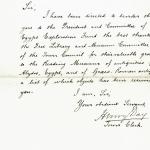 Sir,
I have been directed to tender to
you to the President and Committee of
Egypt Exploration Fund the best thanks
the Free Library and Museum Committee of
the Town Council for this valuable gift
to the Reading Museum of antiquities from
Abydos, Egypt, and of Graeco-Roman antiq
a list of which objects has been received
you.
I am, Sir,
Your obedient Servant,
Henry Day
Town Clerk.